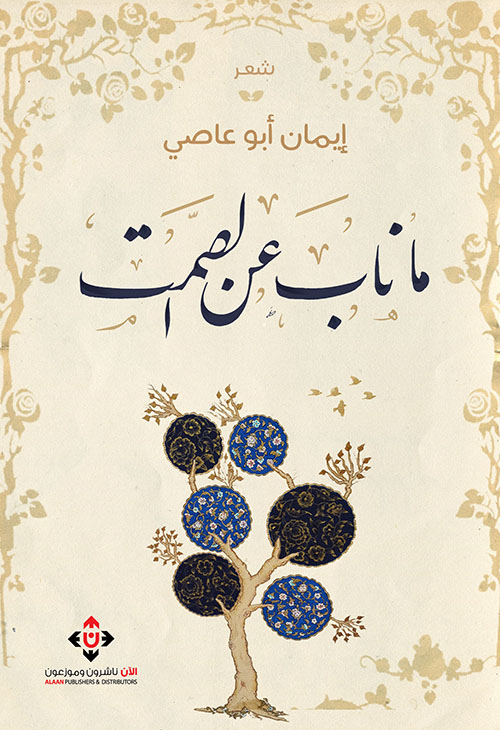 شعر
إيمان أبو عاصي
ما ناب عن الصمت
الآن ناشرون وموزعون
ALAAN PUBLISHERS & DISTRIBUTORS